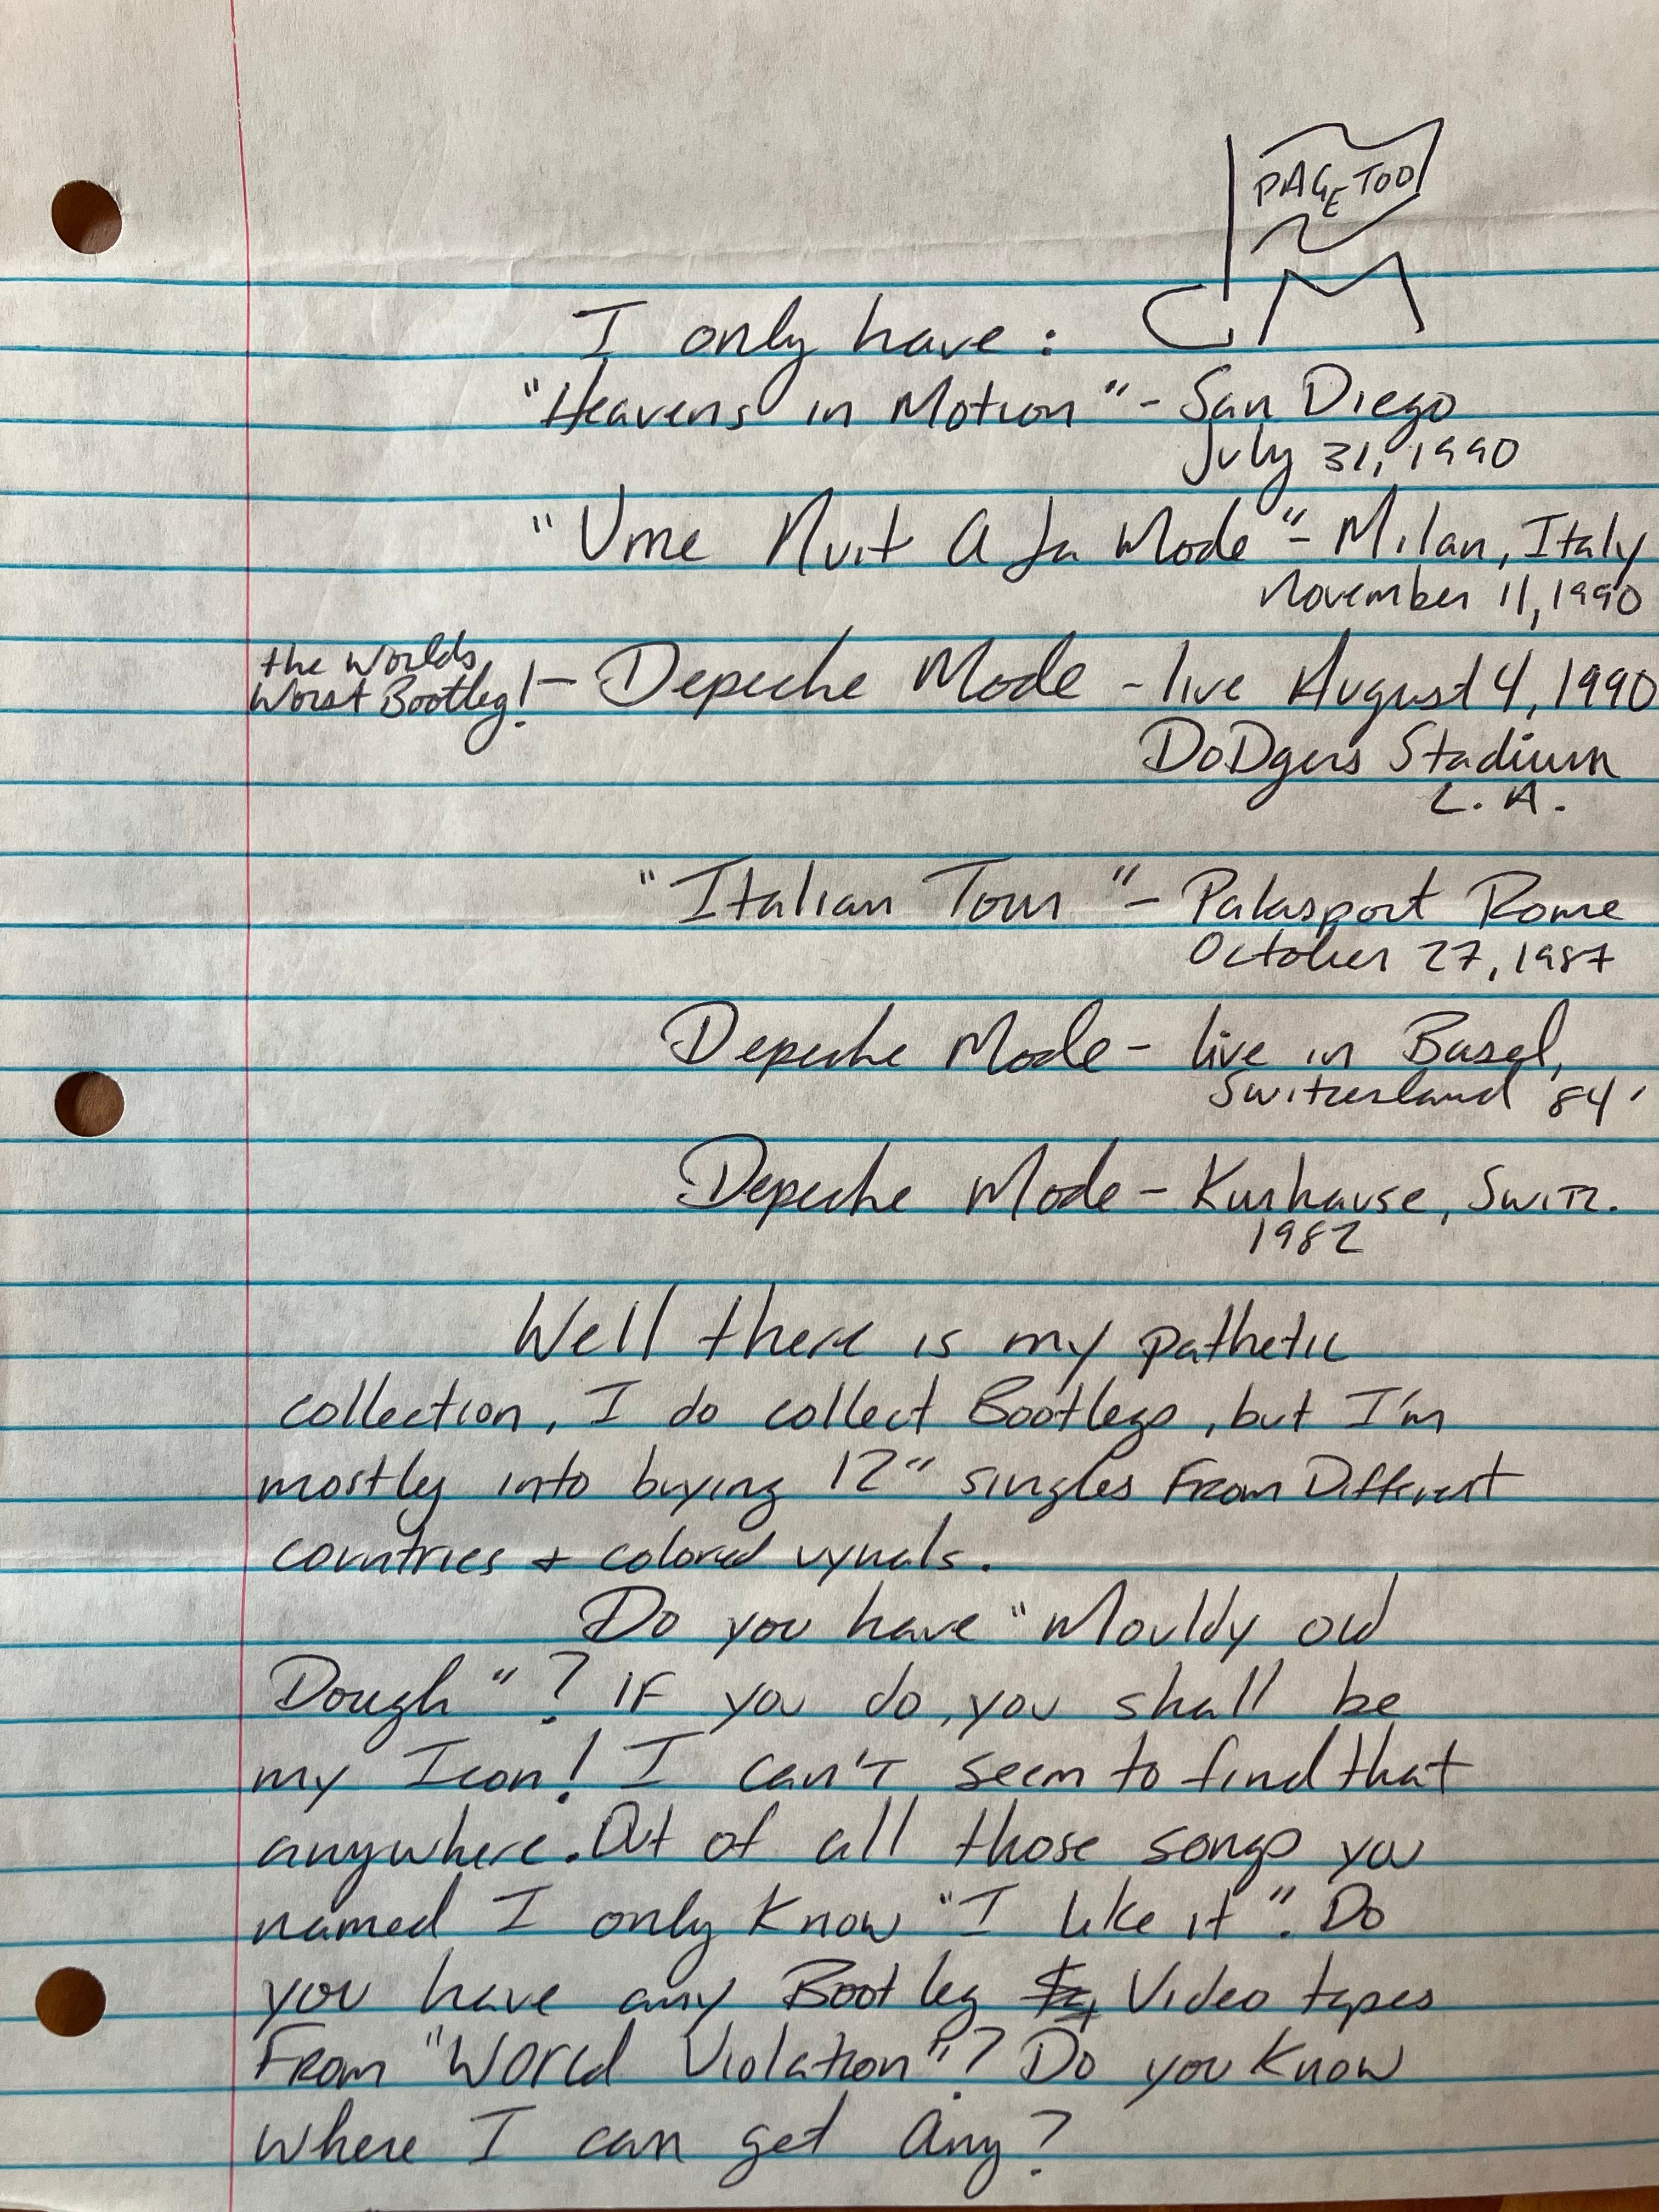 PAGE TOO
I only have:
"Heavens in Motion" - San Diego
July 31, 1990
"Une Nuit A La Mode" - Milan, Italy
November 11, 1990
the Worlds
Worst Bootleg! - Depeche Mode - live August 4, 1990
DoDgers Stadium
L.A.
"Italian Tour" - Palasport Rome
October 27, 1987
Depeche Mode - live in Basel,
Switzerland 84'
Depeche Mode - Kurhause, Switz.
1982
Well there is my pathetic
collection, I do collect Bootlegs, but I'm
mostly into buying 12" singles From Different
countries + colored vynals.
Do you have "Mouldy old
Dough"? IF you do, you shall be
my Icon! I can't seem to find that
anywhere. Out of all those songs you
named I only know "I like it". Do
you have any Boot leg Video tapes
From "World Violation"? Do you Know
where I can get Any?